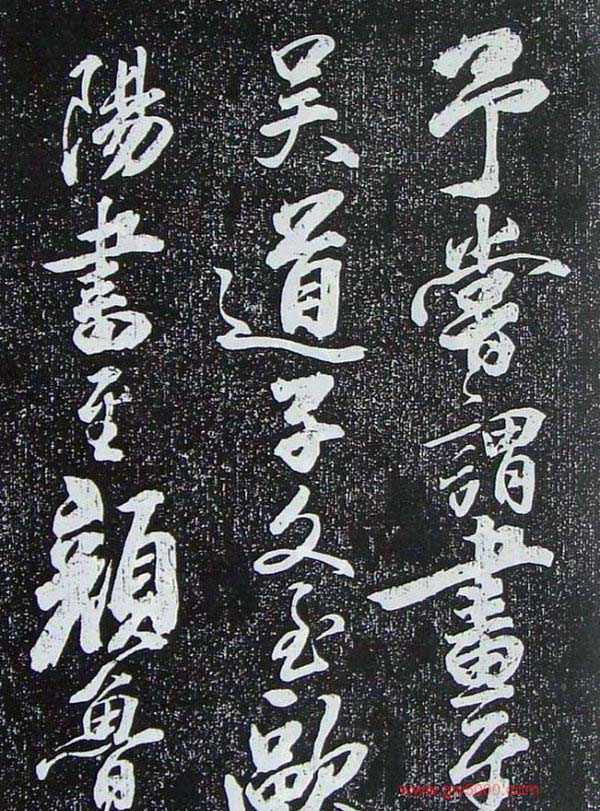 予嘗謂畫至
吳道子文至歐
陽書至顏魯